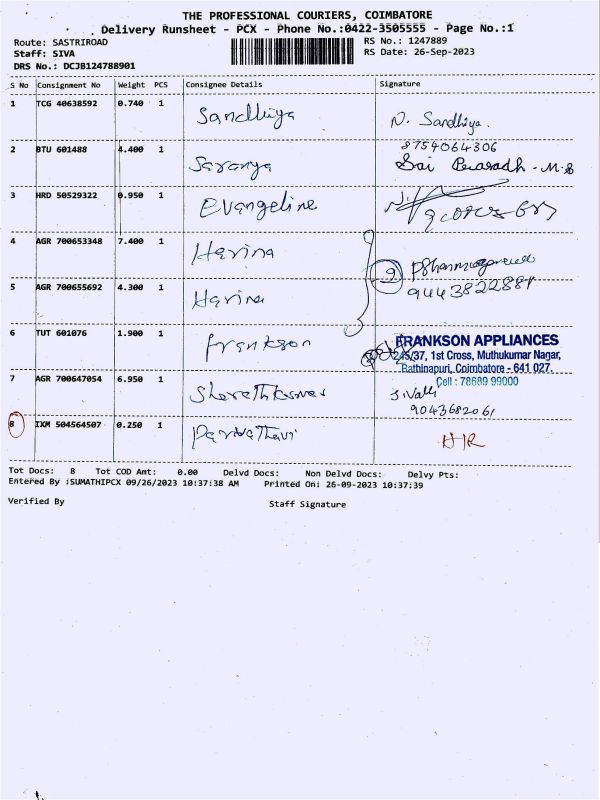 THE PROFESSIONAL COURIERS, COIMBATORE
Delivery Runsheet - PCX - Phone No.:0422-3505555 - Page No.:1
Route: SASTRIROAD
RS No.: 1247889
Staff: SIVA
RS Date: 26-Sep-2023
DRS No.: DCJB124788901
S No Consignment No Weight PCS Consignee Details Signature
1 TCG 40638592 0.740 1 Sandhiya N. Sandhiya.
8754064306
2 BTU 601488 4.400 1 Saranya Sai - M.S
3 HRD 50529322 0.950 1 Evangeline
4 AGR 700653348 7.400 1 Harina
5 AGR 700655692 4.300 1 Harina 2 9443822881
6 TUT 601076 1.900 1 Frankson FRANKSON APPLIANCES
245/37, 1st Cross, Muthukumar Nagar,
Rathinapuri, Coimbatore - 641 027.
Cell : 78689 99000
7 AGR 700647054 6.950 1 Sivalli
9043682061
8 IXM 504564507 0.250 1 HR
Tot Docs: 8 Tot COD Amt: 0.00 Delvd Docs: Non Delvd Docs: Delvy Pts:
Entered By :SUMATHIPCX 09/26/2023 10:37:38 AM Printed On: 26-09-2023 10:37:39
Verified By Staff Signature